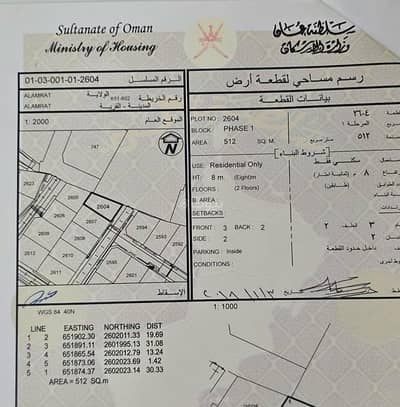 Sultanate of Oman
Ministry of Housing
سلطنة عمان
وزارة الإسكان
01-03-001-01-2604
الرقم المسلسل
ALAMRAT
الولاية
رقم الخريطة
ALAMRAT
المدينة - القرية
1: 2000
الموقع العام
رسم مساحي لقطعة أرض
بيانات القطعة
PLOT NO : 2604
٢٦٠٤
BLOCK: PHASE 1
المرحلة ١
AREA : 512 SQ. M.
متر مربع ٥١٢
شروط البناء
USE: Residential Only
سكني فقط
HT: 8 m (Eight)m
٨ م
FLOORS : (2 Floors)
(طابقين)
B. AREA :
SETBACKS
FRONT : 3 BACK : 2
SIDE : 2
PARKING : Inside
داخل حدود القطعة
CONDITIONS :
747
2623
2604
2594
2592
2607
2591
2611
الإسقاط
WGS 84 40N
1: 1000
LINE EASTING NORTHING DIST
1 2 651902.30 2602011.33 19.69
2 3 651891.11 2601995.13 31.08
3 4 651865.54 2602012.79 13.24
4 5 651873.06 2602023.69 1.42
5 1 651874.37 2602023.14 30.33
AREA = 512 SQ.m